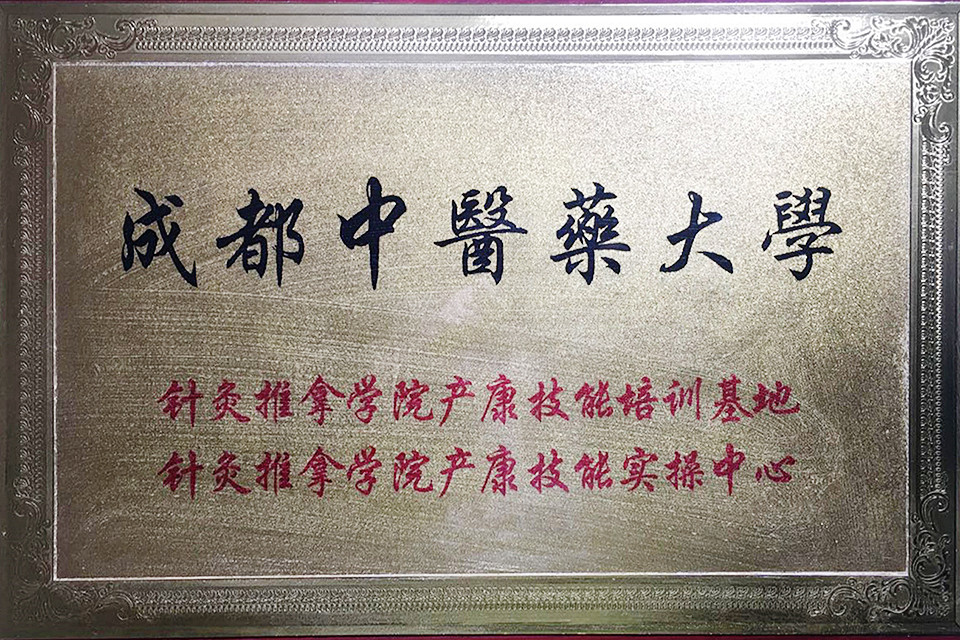 成都中醫藥大學
针灸推拿学院产康技能培训基地
针灸推拿学院产康技能实操中心